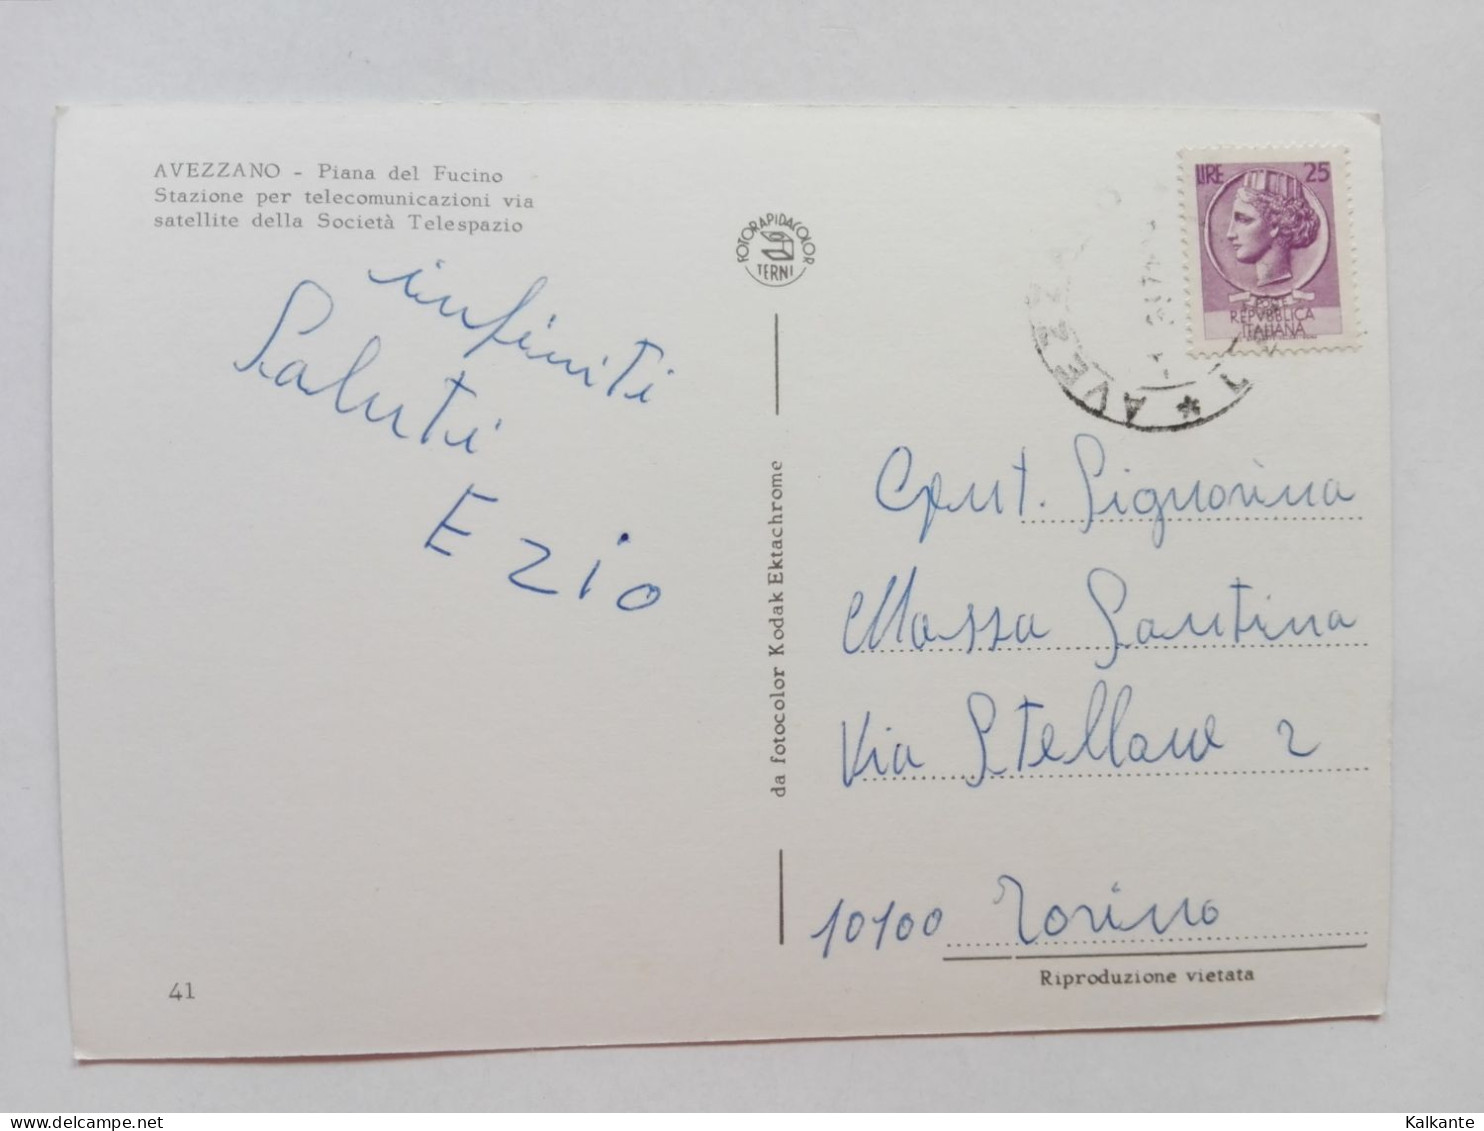 AVEZZANO - Piana del Fucino
Stazione per telecomunicazioni via
satellite della Società Telespazio
infiniti
Saluti
Ezio
41
FOTORAPIDACOLOR
TERNI
da fotocolor Kodak Ektachrome
LIRE 25
REPVBBLICA
ITALIANA
AVEZZ
Gent. Signorina
Massa Santina
Via Stellone 2
10100 Torino
Riproduzione vietata
Kalkante